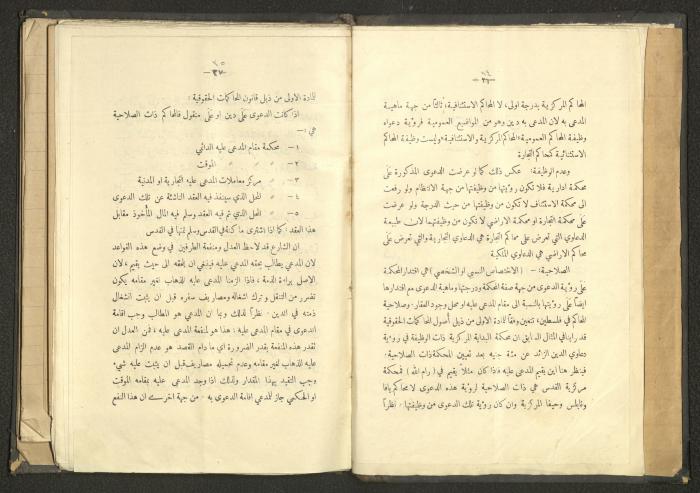 ٦٤
—٣٦—
المحاكم المركزية بدرجة اولى، لا المحاكم الاستئنافية، ثالثاً من جهة ماهية
المدعى به لان المدعى به دين وهو من المواضيع العمومية فرؤية دعواه
وظيفة المحاكم العمومية «المحاكم المركزية والاستئنافية» وليست وظيفة المحاكم
الاستثنائية كمحاكم التجارة
وعدم الوظيفة: عكس ذلك كما لو عرضت الدعوى المذكورة على
محكمة ادارية فلا تكون رؤيتها من وظيفتها من جهة الانتظام ولو رفعت
الى محكمة الاستئناف لا تكون من وظيفتها من حيث الدرجة ولو عرضت
على محكمة التجارة او محكمة الاراضي لا تكون من وظيفتهما لان طبيعة
الدعاوي التي تعرض على محاكم التجارة هي الدعاوي التجارية والتي تعرض على
محاكم الاراضي هي الدعاوي الملكية
الصلاحية: — (الاختصاص النسبي او الشخصي) هي اقتدار المحكمة
على رؤية الدعوى من جهة صفة المحكمة ودرجتها وماهية الدعوى مع اقتدارها
ايضاً على رؤيتها بالنسبة الى مقام المدعى عليه او محل وجود العقار، وصلاحية
المحاكم في فلسطين، تتعين وفقاً للمادة الاولى من ذيل أصول المحاكمات الحقوقية
قد رأينا في المثال السابق ان محكمة البداية المركزية ذات الوظيفة في رؤية
دعاوي الدين الزائد عن مئة جنيه بعد تعيين المحكمة ذات الصلاحية،
فينظر هنا اين يقيم المدعى عليه فاذا كان مثلا يقيم في (رام الله) فمحكمة
مركزية القدس هي ذات الصلاحية لرؤية هذه الدعوى لا محاكم يافا
ونابلس وحيفا المركزية وان كان رؤية تلك الدعوى من وظيفتها، نظراً
٦٥
—٣٧—
للمادة الاولى من ذيل قانون المحاكمات الحقوقية:
اذا كانت الدعوى على دين او على منقول فالمحاكم ذات الصلاحية
هي: —
١— محكمة مقام المدعى عليه الدائمي
٢— » » » » الموقت
٣— » مركز معاملات المدعى عليه التجارية او المدنية
٤— » المحل الذي سينفذ فيه العقد الناشئة عن تلك الدعوى
٥— » المحل الذي تم فيه العقد وسلم فيه المال المأخوذ مقابل
هذا العقد، كما اذا اشترى ماكنة في القدس وسلم ثمنها في القدس
ان الشارع قد لاحظ العدل ومنفعة الطرفين في وضع هذه القواعد
لان المدعي يطالب بحقه المدعى عليه فينبغي ان يلحقه الى حيث يقيم، لان
الاصل براءة الذمة، فاذا الزمنا المدعى عليه للذهاب لغير مقامه يكون
تضرر من التنقل وترك اشغاله ومصاريف سفره قبل ان يثبت انشغال
ذمته في الدين، نظراً لذلك وبما ان المدعي هو المطالب وجب اقامة
الدعوى في مقام المدعى عليه: هذا هو لمنفعة المدعى عليه، فمن العدل ان
تقدر هذه المنفعة بقدر الضرورة اي ما دام القصد هو عدم الزام المدعى
عليه للذهاب لغير مقامه وعدم تحميله مصاريف قبل ان يثبت عليه شيء
وجب التقيد بهذا المقدار ولذلك اذا وجد المدعى عليه بمقامه الموقت
او الحكمي جاز للمدعي اقامة الدعوى به، من جهة اخرى ان هذا النفع